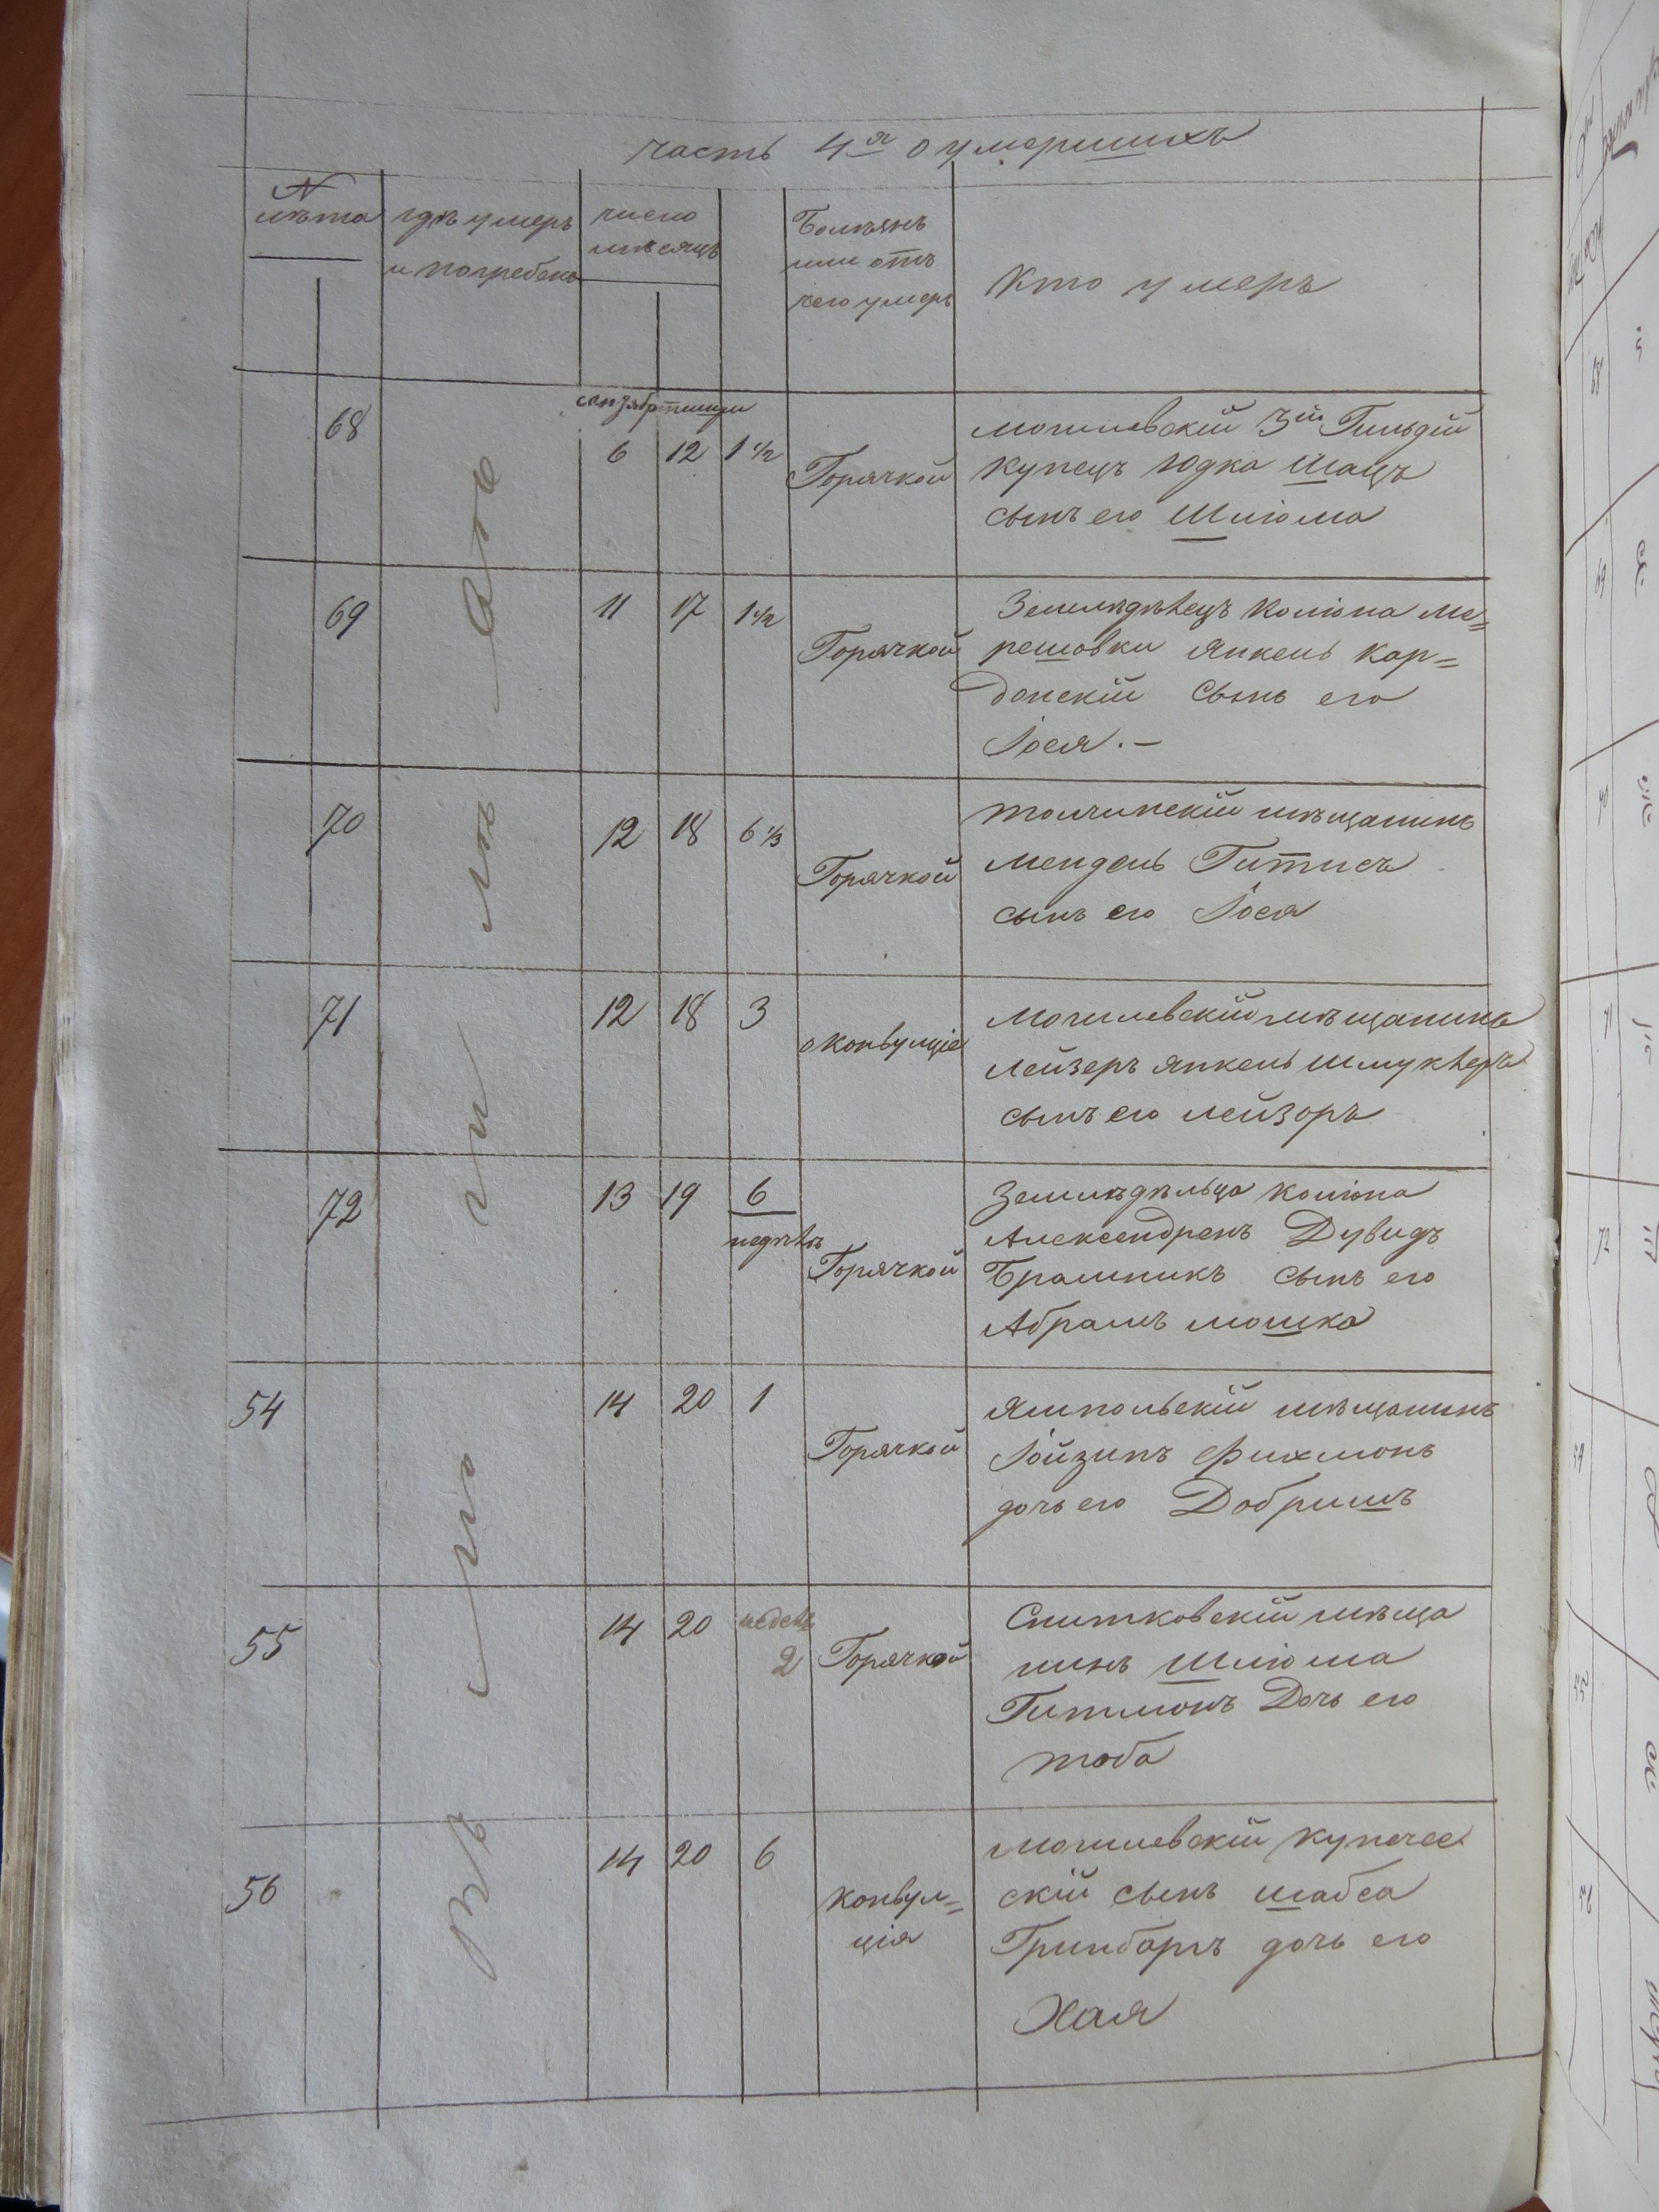 часть 4я о умершихъ
№
лѣта
гдѣ умеръ
и погребенъ
число
мѣсяцъ
Болѣзнь
или отъ
чего умеръ
Кто умеръ
68
6 12 1 1/2
Горячкой
Могилевскій 3й Гильдій
купецъ Юдка Шацъ
сынъ его Шліома
69
11 17 1 1/2
Горячкой
Земледѣлецъ Колiона Ме=
решовки Янкель Кор=
донскій Сынъ его
Іося.—
70
12 18 6 1/3
Горячкой
Толчинскій мѣщанинъ
Мендель Гитисъ
сынъ его Іося
71
12 18 3
Конвулціе
Могилевскій мѣщанинъ
Лейзеръ Янкель Шмуклеръ
сынъ его Лейзоръ
72
13 19 6
недѣль
Горячкой
Земледѣльца Колiона
Александренъ Дувидъ
Сынъ его
Абрамъ Мошка
54
14 20 1
Горячкой
Ямпольскій мѣщанинъ
Іойзипъ Фихманъ
дочь его Добришъ
55
14 20 недель
2
Горячкой
Снитковскій мѣща
нинъ Шліома
Гитманъ Дочь его
Тоба
56
14 20 6
Конвул=
ція
Могилевскій купечес
скій сынъ Шабса
Гринбаргъ дочь его
Хая
Въ могилѣ